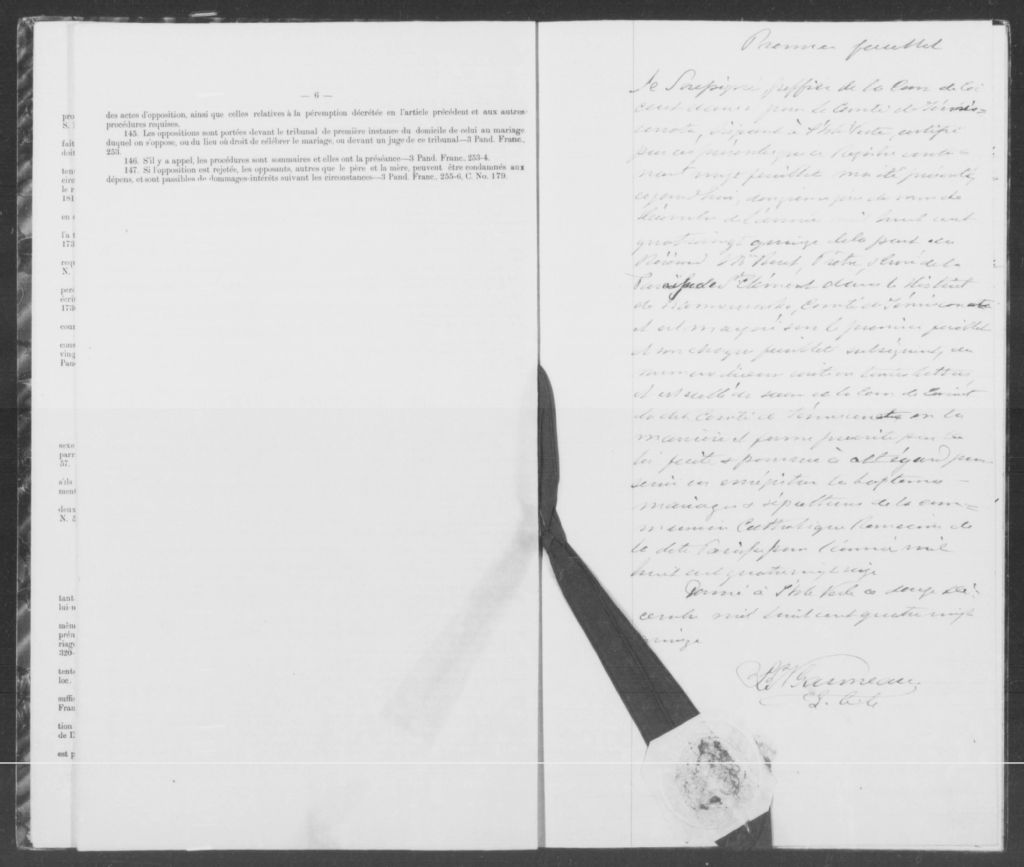 pro
S. 1
fait
doit
ten
circ
le r
181
en s
l'a t
173
requ
N.
per
écri
173
cour
cons
ving
Pan
sexe
parr
57.
s'ils
ment
deux
N. 5
tant
lui-n
mêm
préa
riage
320-
tente
loc.
suffi
Fran
tion
de D
est p
— 6 —
des actes d'opposition, ainsi que celles relatives à la péremption décrétée en l'article précédent et aux autres
procédures requises.
145. Les oppositions sont portées devant le tribunal de première instance du domicile de celui au mariage
duquel on s'oppose, ou du lieu où droit de célébrer le mariage, ou devant un juge de ce tribunal—3 Pand. Franc.,
253.
146. S'il y a appel, les procédures sont sommaires et elles ont la préséance—3 Pand. Franc., 253-4.
147. Si l'opposition est rejetée, les opposants, autres que le père et la mère, peuvent être condamnés aux
dépens, et sont passibles de dommages-intérêts suivant les circonstances—3 Pand. Franc., 255-6, C. No. 179.
Premier feuillet
Je Soussigné Greffier de la Cour de Cir
cuit dans pour le Comté de Témis=
couata, à l'Isle Verte, certifie
par ces présentes que ce Registre conte=
nant onze feuillets m'a été présenté
ce jourd'hui, douzième jour du mois de
Décembre de l'année mil huit cent
quatrevingt quinze de la part du
Révérend Prêtre, Curé de la
Paroisse de St Clément dans le District
de Kamouraska, Comté de Témiscouata
et est marqué sur le premier feuillet
et sur chaque feuillet subséquent, du
numéro écrit en toutes lettres
et est scellé du sceau de la Cour de Circuit
du dit Comté de Témiscouata en la
manière et forme prescrite par la
loi faite & pourvue à cet égard pour
servir à enrégistrer les baptêmes
mariages & sépultures de la com=
munion Catholique Romaine de
la dite Paroisse pour l'année mil
huit cent quatrevingt seize
Donné à l'Isle Verte ce douze Dé=
cembre mil huit cent quatre vingt
quinze